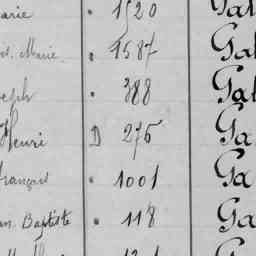 arie . 1520 Gal
Marie . 1587 Gal
seph . 388 Gal
Henri D 275 Ga
françois . 1001 Ga
an Baptiste . 118 Ga